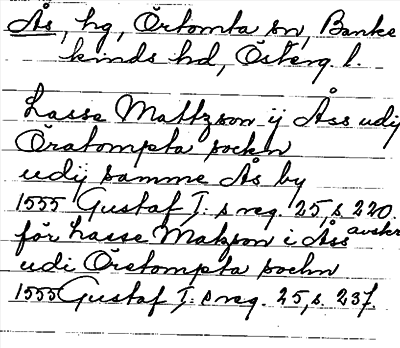 Ås, hg, Örtomta sn, Banke
kinds hd, Österg. l.
Lasse Mattzson ij Åss udij
Öratompta sockn
udij samme Ås by
1555 Gustaf I:s reg. 25, s. 220.
för Lasse Matzson i Åss avskr
udi Örstompta sochn
1555 Gustaf I:s reg. 25, s. 237.